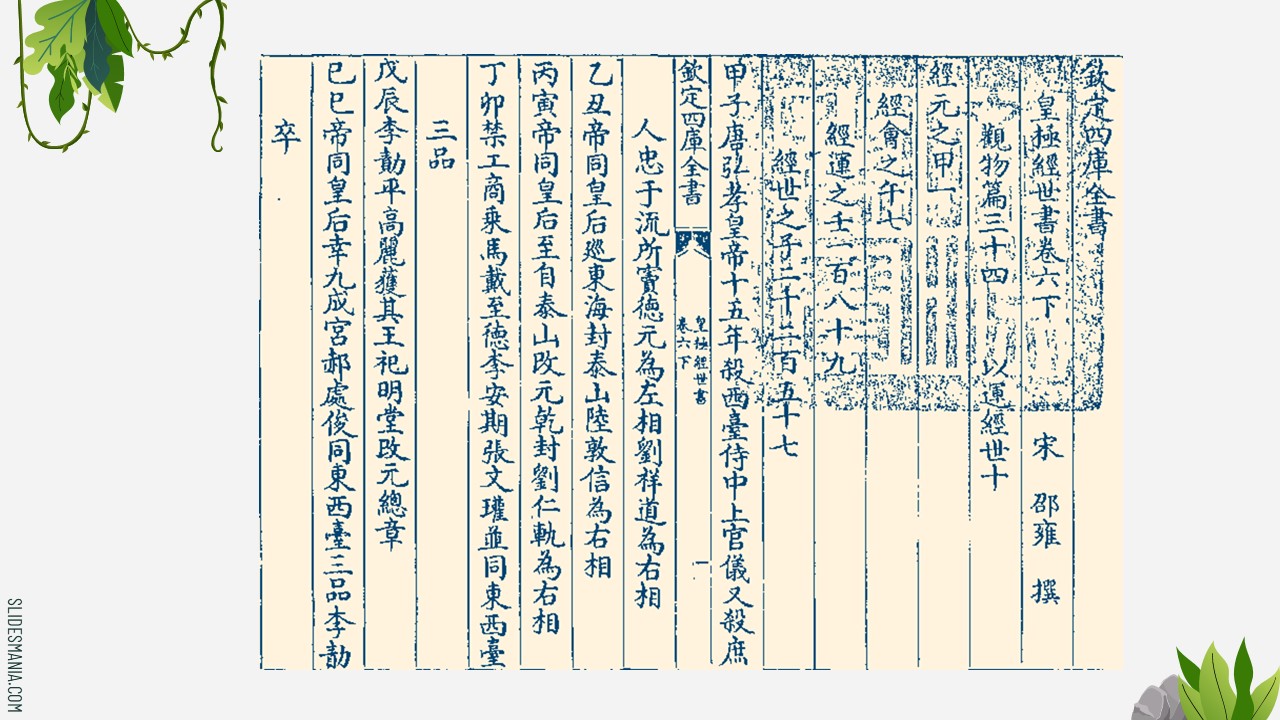 欽定四庫全書
皇極經世書卷六下 宋 邵雍 撰
觀物篇三十四 以運經世十
經元之甲一
經會之午七
經運之壬一百八十九
經世之子二千二百五十七
甲子唐弘孝皇帝十五年殺西臺侍中上官儀又殺庶
欽定四庫全書
皇極經世書
卷六下
一
人忠于流所竇德元為左相劉祥道為右相
乙丑帝同皇后廵東海封泰山陸敦信為右相
丙寅帝同皇后至自泰山改元乾封劉仁軌為右相
丁卯禁工商乘馬戴至德李安期張文瓘並同東西臺
三品
戊辰李勣平高麗獲其王祀明堂改元總章
己巳帝同皇后幸九成宮郝處俊同東西臺三品李勣
卒
SLIDESMANIA.COM